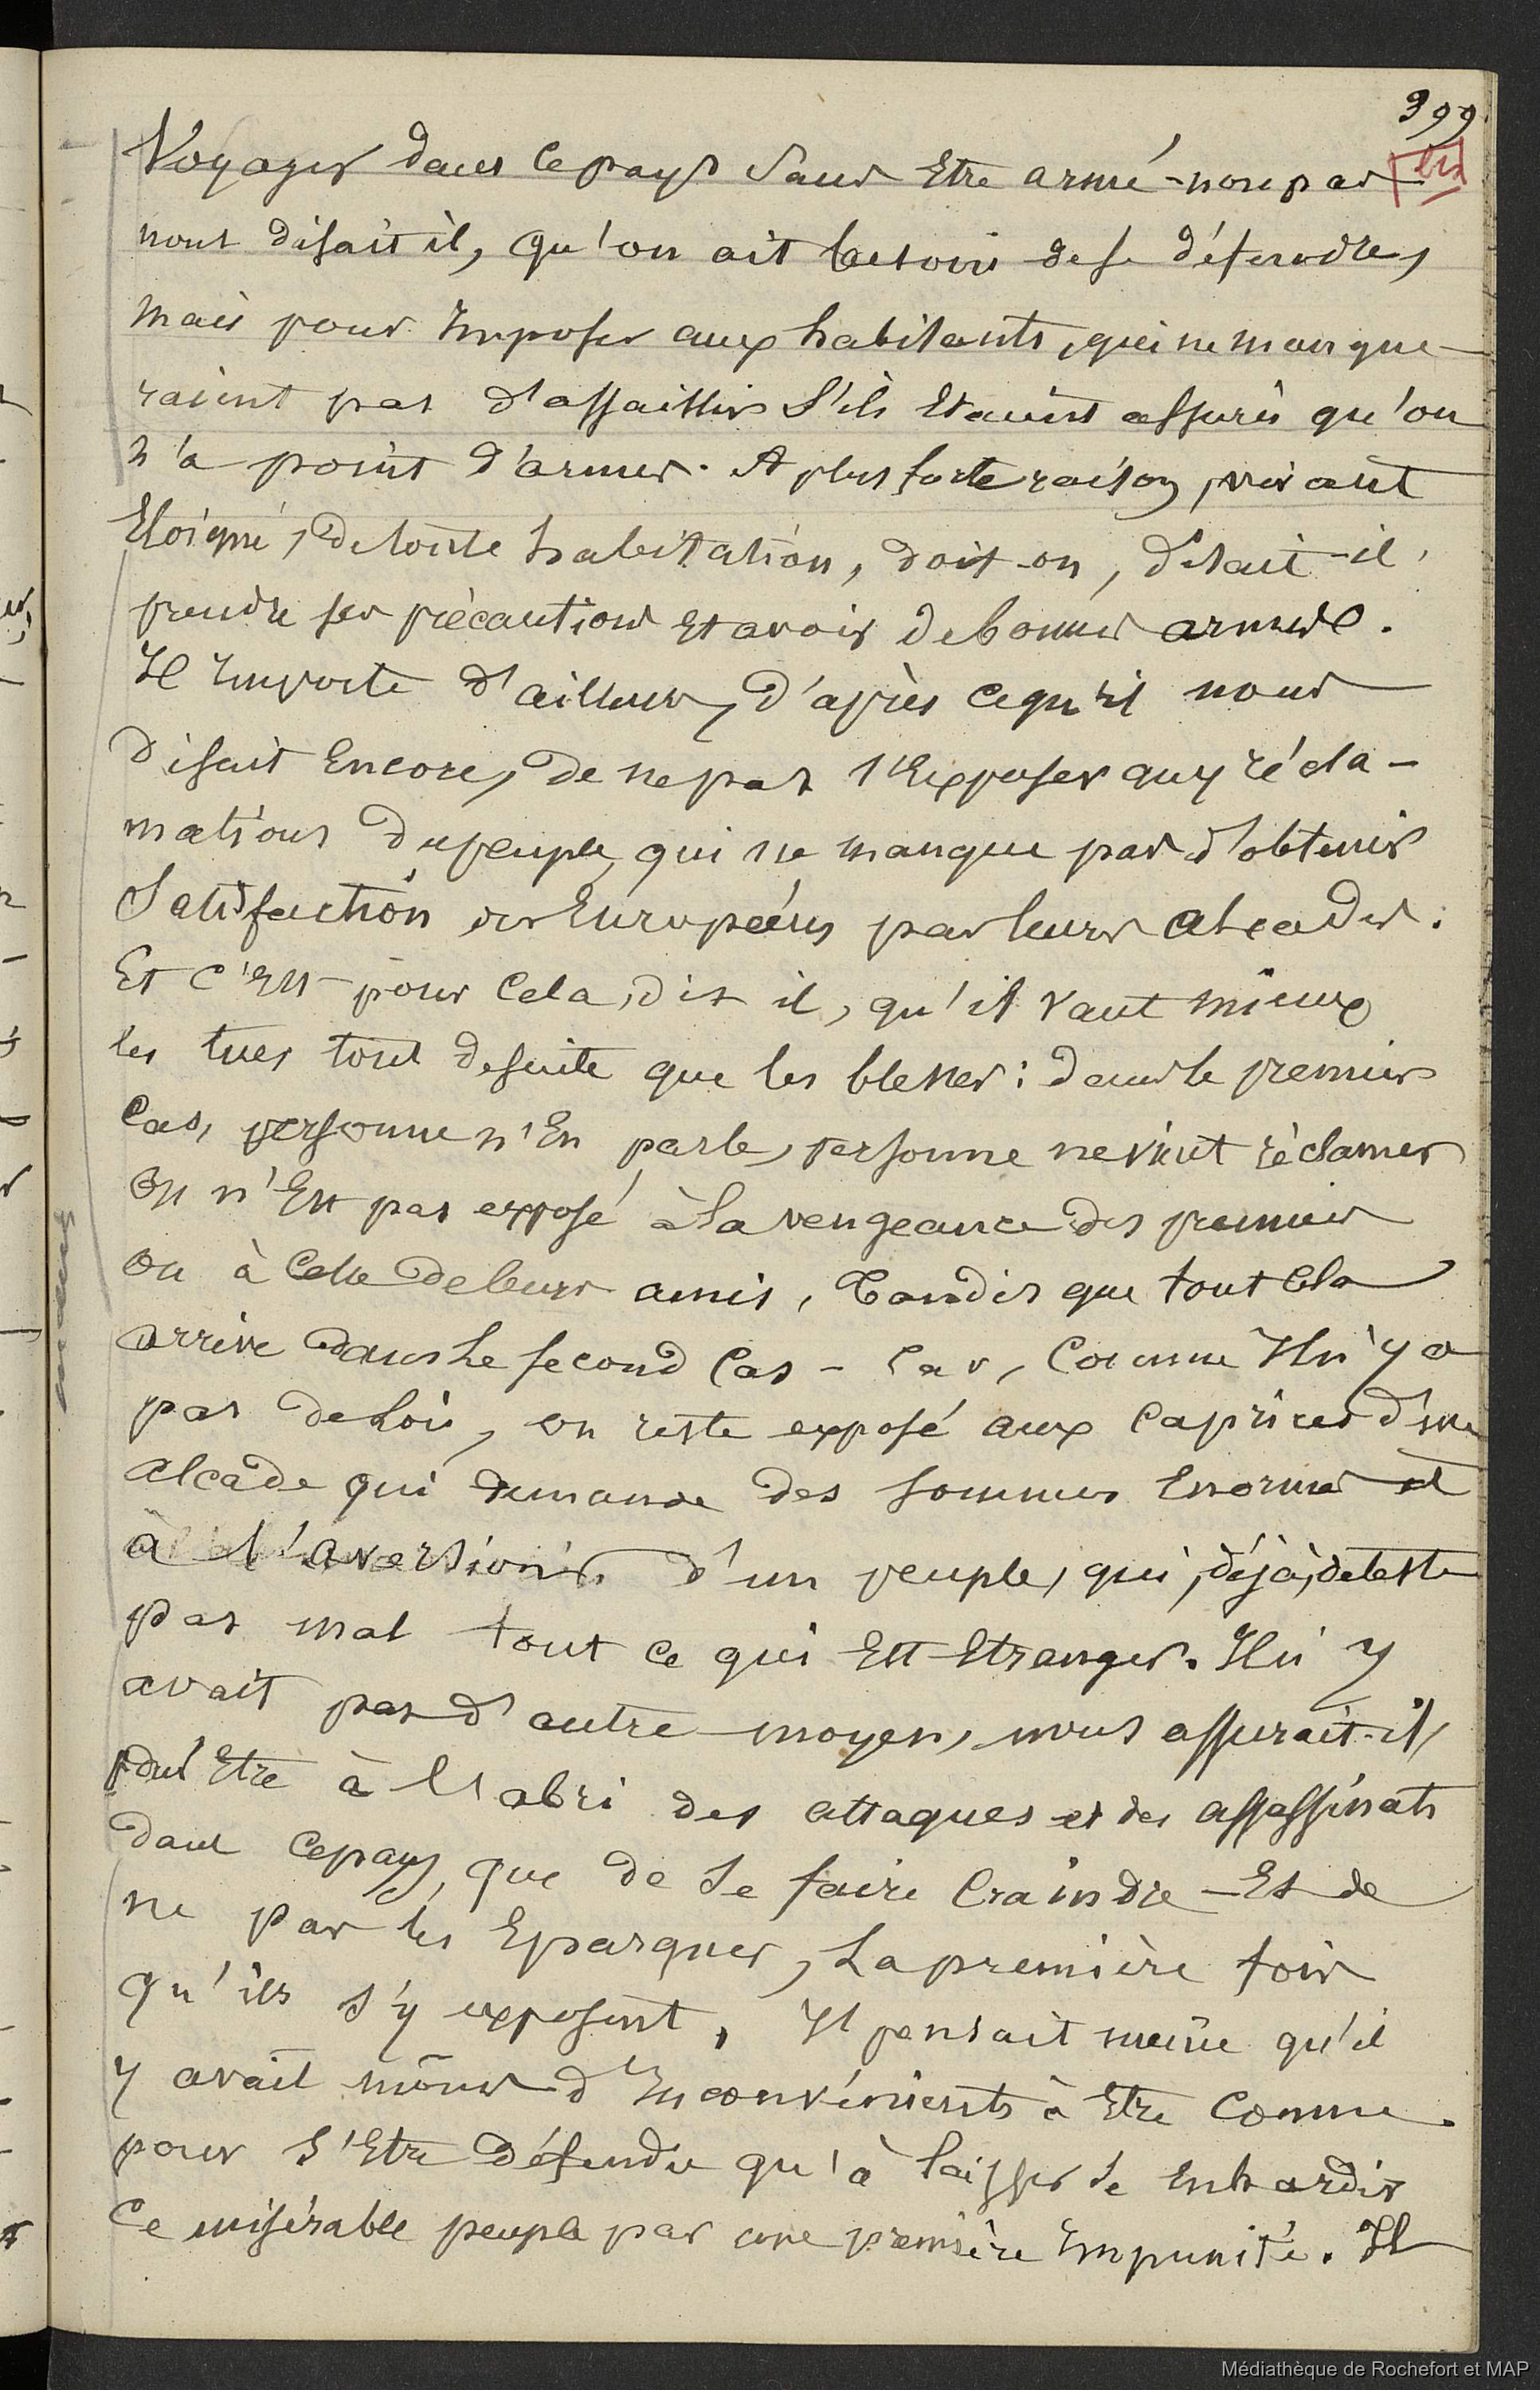 399
bis
Voyager dans ce pays sans Etre armé - non pas
nous disait il, qu'on ait besoin de se défendre,
mais pour Imposer aux habitants, qui ne manque-
raient pas d'assaillir s'ils Etaient assurés qu'on
n'a point d'armes. A plus forte raison, vivant
Eloigné, de toute habitation, doit-on, disait-il,
prendre ses précautions et avoir de bonnes armes.
Il Importe d'ailleurs, d'après ce qu'il nous
disait Encore, de ne pas s'Exposer aux récla-
mations du peuple, qui ne manque pas d'obtenir
Satisfaction des Européens par leurs alcades.
Et c'Est pour Cela, dit il, qu'il vaut mieux
les tuer tout de suite que les blesser : dans le premier
Cas, personne n'En parle, personne ne vient réclamer
On n'Est pas exposé à la vengeance des premiers
ou à Celle de leurs amis, Tandis que tout Cela
arrive dans le second Cas - Car, Comme Il n'y a
pas de Loi, on reste exposé aux Caprices d'un
alcade qui demande des sommes Enormes et
à l'aversion d'un peuple, qui, déjà, déteste
pas mal tout ce qui Est Etranger. Il n'y
avait pas d'autre moyen, nous assurait-il,
pour Etre à l'abri des attaques et des assassinats
dans ce pays, que de se faire Craindre - Et de
ne pas les Epargner, La première fois
qu'ils s'y exposent, Il pensait même qu'il
y avait moins d'Inconvénients à Etre Connu
pour s'Etre défendu qu'à laisser se Enhardir
Ce misérable peuple par une première Impunité. Il
Médiathèque de Rochefort et MAP